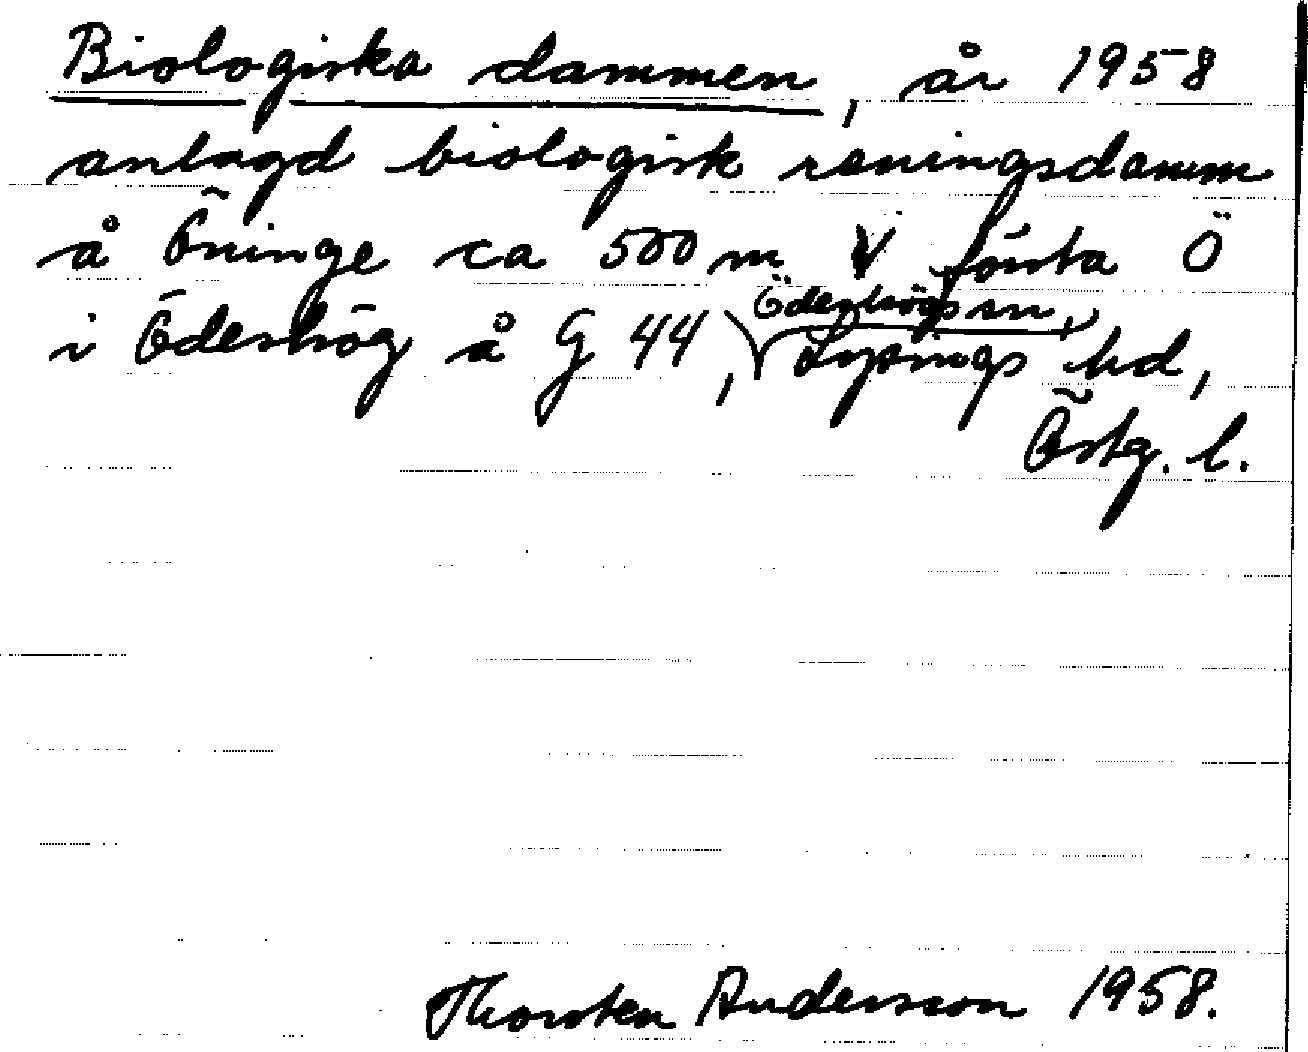 Biologiska dammen, år 1958
anlagd biologisk reningsdamm
å Öninge ca 500 m V första Ö
i Ödeshög å G 44, Ödeshögs sn, Lysings hd,
Östg. l.
Thorsten Andersson 1958.